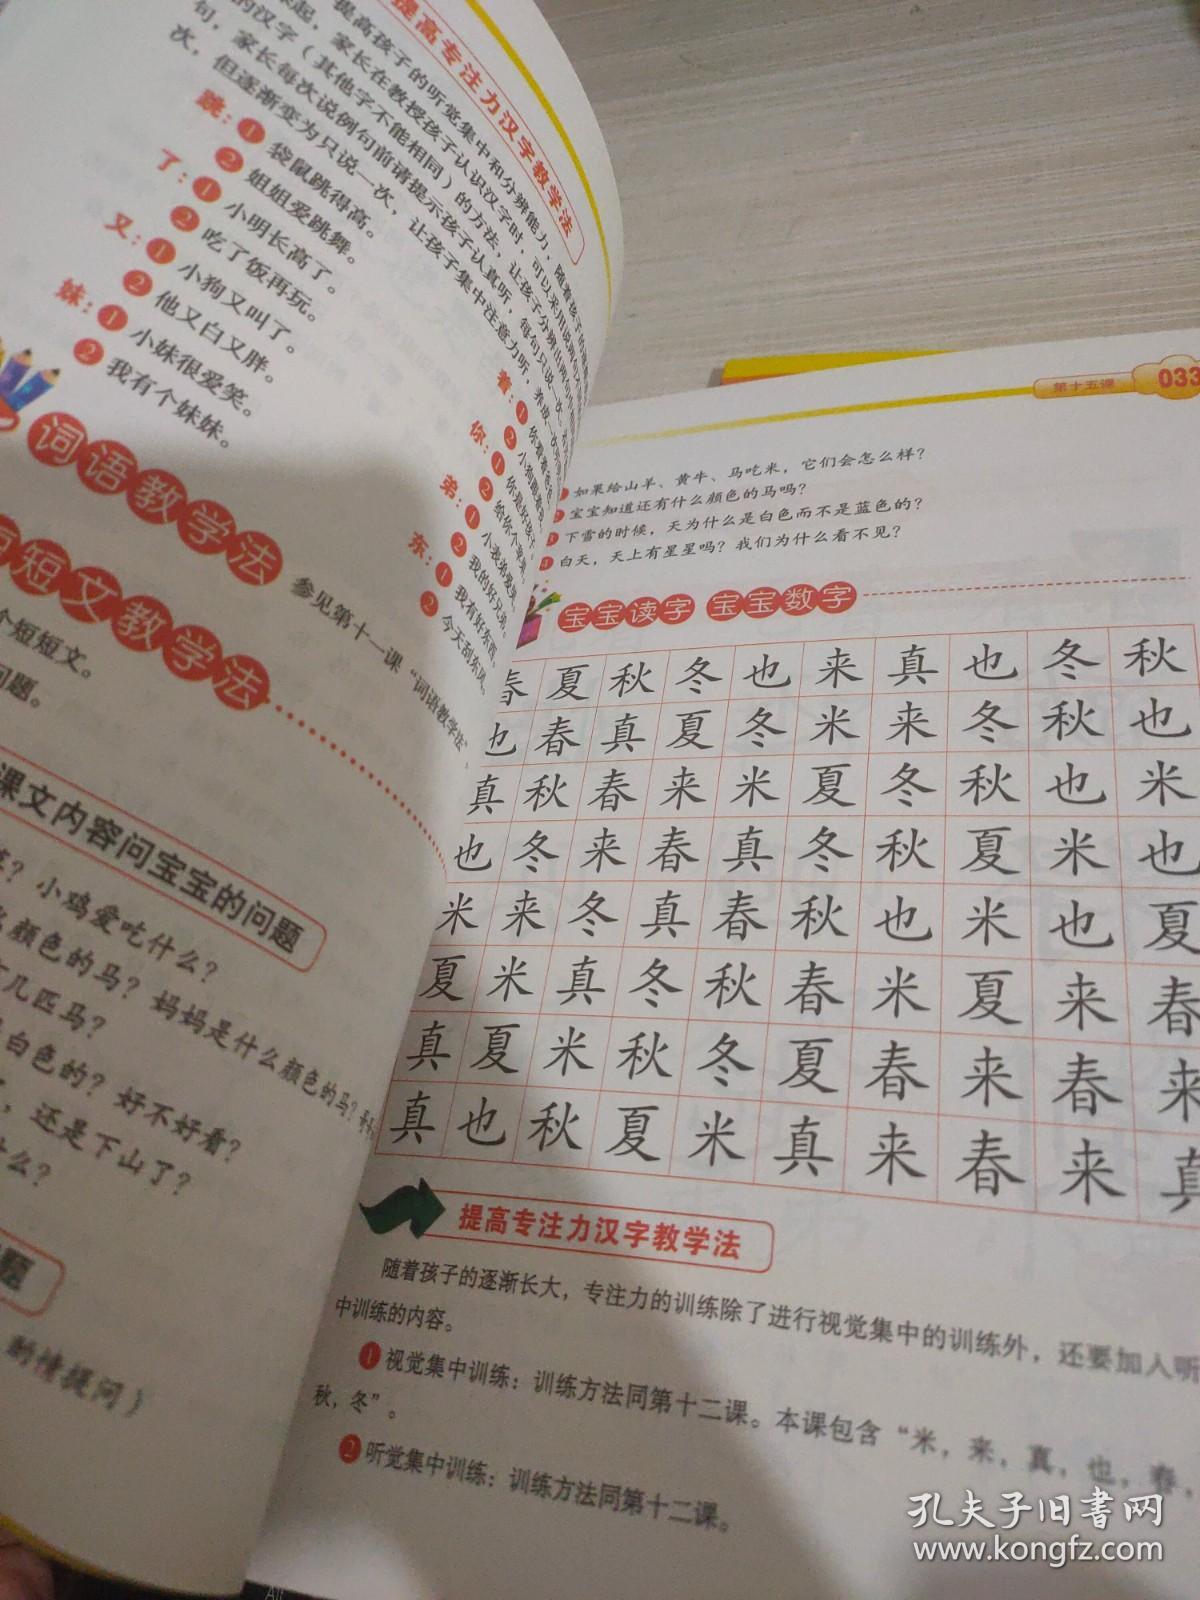 提高专注力汉字教学法
提高孩子的听觉集中和分辨能力，随着孩子的
起，家长在教授孩子认识汉字时，可以采用说两
的汉字（其他字不能相同）的方法，让孩子分辨出两句
句，家长每次说例句前请提示孩子认真听，每句只说一次。
次，但逐渐变为只说一次，让孩子集中注意力听，养成一次
跳：1 袋鼠跳得高。
2 姐姐爱跳舞。
了：1 小明长高了。
2 吃了饭再玩。
又：1 小狗又叫了。
2 他又白又胖。
妹：1 小妹很爱笑。
2 我有个妹妹。
着：1
2
你：1 你是好孩子。
2
弟：1
2 我的好兄弟。
东：1 我有好东西。
2 今天刮东风。
词语教学法 参见第十一课“词语教学法”。
短文教学法
个短短文。
问题。
课文内容问宝宝的问题
？小鸡爱吃什么？
颜色的马？妈妈是什么颜色的马？
几匹马？
白色的？好不好看？
，还是下山了？
什么？
题
酌情提问）
第十五课 033
如果给山羊、黄牛、马吃米，它们会怎么样？
宝宝知道还有什么颜色的马吗？
3 下雪的时候，天为什么是白色而不是蓝色的？
4 白天，天上有星星吗？我们为什么看不见？
宝宝读字 宝宝数字
春 夏 秋 冬 也 来 真 也 冬 秋
也 春 真 夏 冬 米 来 冬 秋 也
真 秋 春 来 米 夏 冬 秋 也 米
也 冬 来 春 真 冬 秋 夏 米 也
米 来 冬 真 春 秋 也 米 也 夏
夏 米 真 冬 秋 春 米 夏 来 春
真 夏 米 秋 冬 夏 春 来 春 来
真 也 秋 夏 米 真 来 春 来 真
提高专注力汉字教学法
随着孩子的逐渐长大，专注力的训练除了进行视觉集中的训练外，还要加入听
中训练的内容。
1 视觉集中训练：训练方法同第十二课。本课包含“米，来，真，也，春，
秋，冬”。
2 听觉集中训练：训练方法同第十二课。
孔夫子旧书网
www.kongfz.com